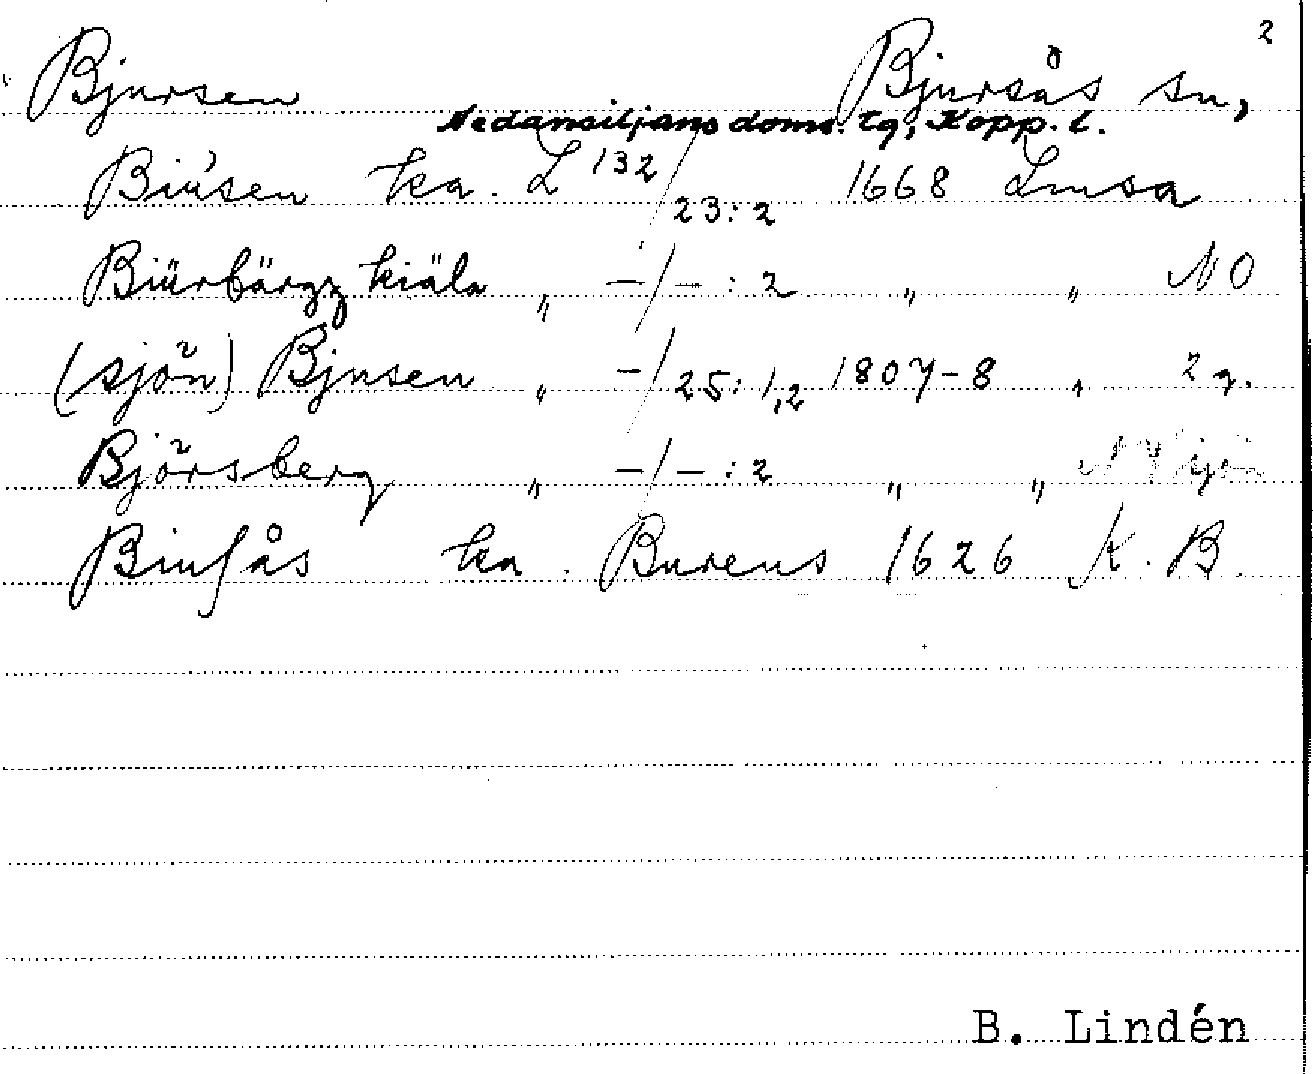 2
Bjursen Bjursås sn,
Nedansiljans doms. tg, Kopp. l.
Biúsen ka. L 132/23:2 1668 Lmsa
Biürbärgz kiäla „ -/-:2 „ „ NO
(sjön) Bjusen „ -/25:1,2 1807-8 „ 2 g.
Björsberg „ -/-:2 „ „
Biusås ka. Bureus 1626 K.B.
B. Lindén